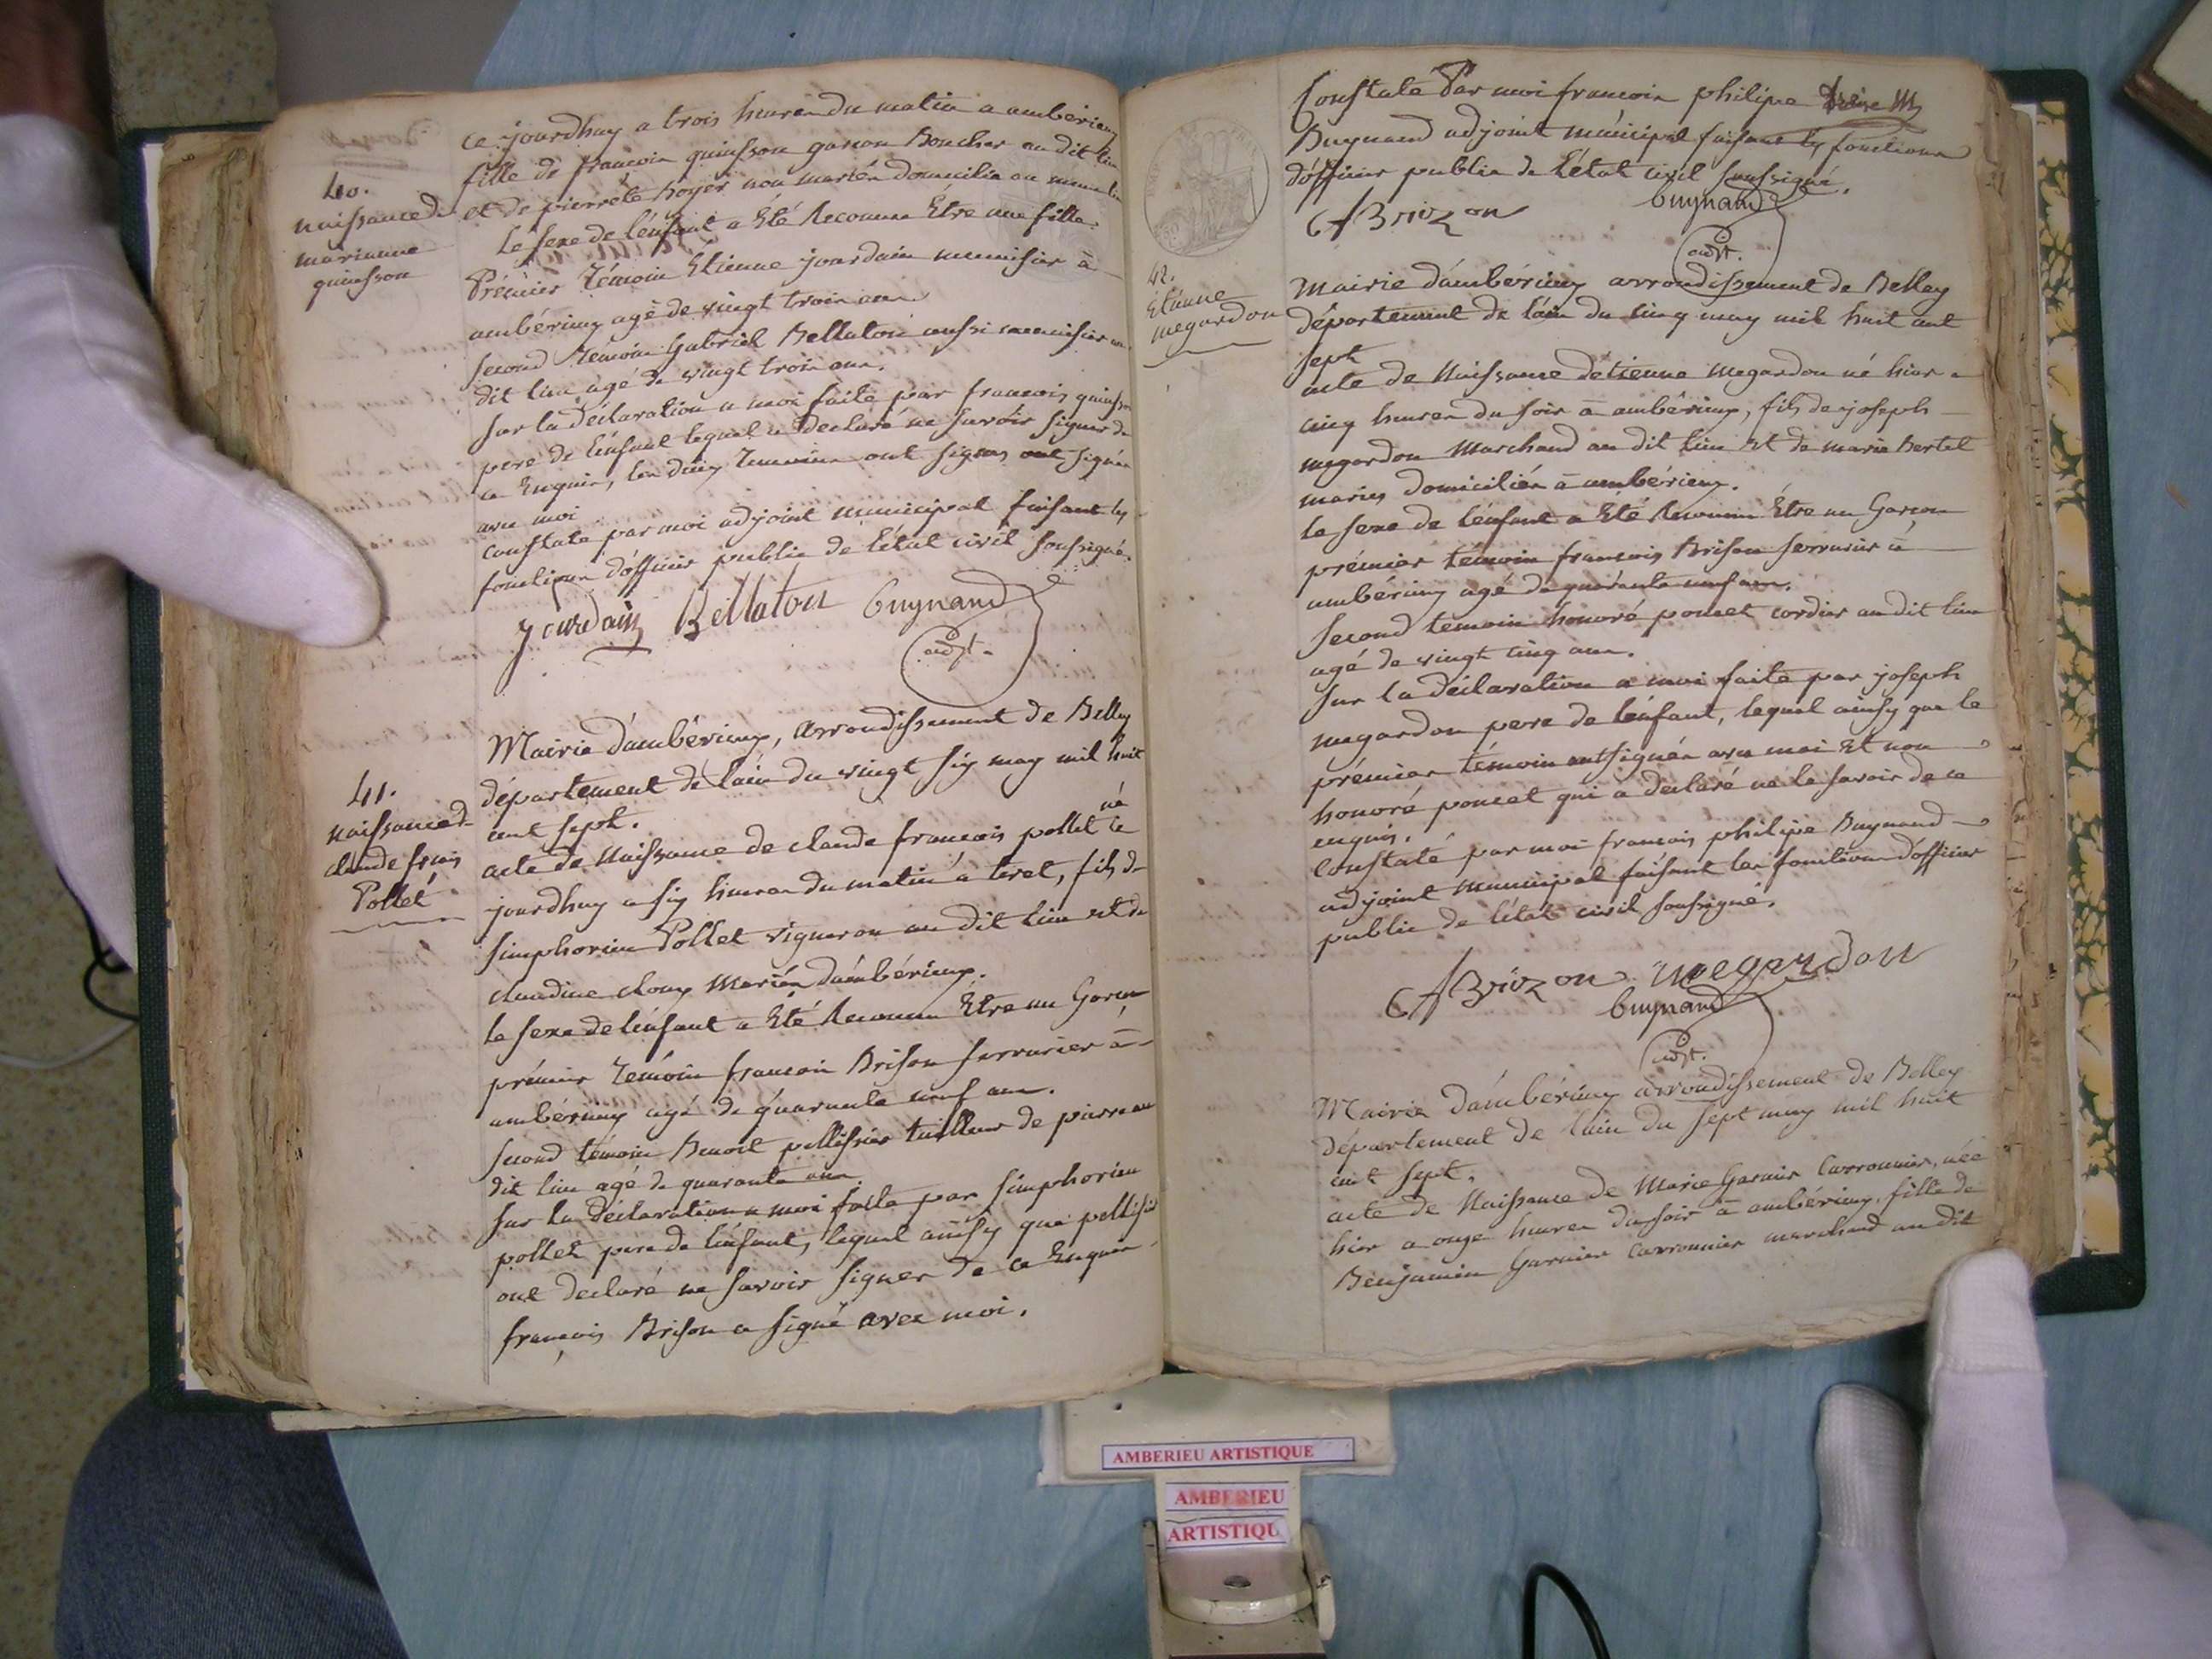 40.
naissance de
marianne
quinsson
ce jourdhuy a trois heures du matin a amberieux
fille de francois quinsson garcon Boucher au dit lieu
et de pierrete boyer non mariés domicilié au même lieu
Le sexe de lénfant a Eté Reconnu Etre une fille.
Prémier Témoin Etienne jourdain menuisier à
ambérieux agé de vingt trois ans
second Temoin Gabriel Bellaton aussi menuisier au
dit lieu agé de vingt trois ans.
sur la déclaration a moi faite par francois quinsson
pere de lénfant lequel a Déclaré ne savoir signer de
ce Enquis, les deux Temoins ont signés ont signés
avec moi
constaté par moi adjoint municipal faisant les
fonctions dófficier public de létat civil soussigné.
Jourdain Bellaton Buynand
adjt.
41.
naissance de
claude frcois
Pollet
Mairie dámbérieux, arrondissement de Belley
département de láin du vingt six may mil huit
cent sept.
acte de Naissance de claude francois pollet né ce
jourdhuy a six heures du matin à tiret, fils de
simphorien Pollet vigneron au dit lieu et de
claudine cloux mariés dámbérieux.
le sexe de lénfant a Eté Reconnu Etre un Garcon
prémier Témoin francois Brison serrurier à
ambérieux agé de quarante neuf ans.
second témoin Benoit pellissier tailleur de pierre au
dit lieu agé de quarante ans.
sur la déclaration a moi faite par simphorien
pollet pere de lénfant, lequel ainsy que pellissier
ont declaré ne savoir signer de ce Enquis
francois Brison a signé avec moi.
Constaté Par moi francois philipe
Buynand adjoint municipal faisant les fonctions
dófficier public de létat civil soussigné.
Buynand
f Brizon
adjt.
42.
Etienne
megardon
Mairie dámbérieux arrondissement de Belley
département de láin du cinq may mil huit cent
sept
acte de Naissance détienne megardon né hier a
cinq heures du soir à ambérieux, fils de joseph
megardon Marchand au dit lieu et de marie Bertet
mariés domiciliés à ambérieux.
le sexe de lénfant a Eté Reconnu Etre un Garcon
prémier témoin francois Brison serrurier à
ambérieux agé de quarante neuf ans.
second temoin honoré poncet cordier au dit lieu
agé de vingt cinq ans.
sur la Déclaration a moi faite par joseph
megardon pere de lénfant, lequel ainsy que le
prémier témoin ont signés avec moi Et non
honoré poncet qui a déclaré ne le savoir de ce
enquis.
Constaté par moi francois philipe Buynand
adjoint municipal faisant les fonctions dófficier
public de létat civil soussigné.
f Brizon megardon
Buynand
adjt.
Mairie dámbérieux arrondissement de Belley
département de láin du sept may mil huit
cent sept.
acte de Naissance de Marie Garnier Carronnier, née
hier a onze heures du soir à ambérieux, fille de
Benjamin Garnier Carronnier marchand au dit
AMBERIEU ARTISTIQUE
AMBERIEU
ARTISTIQU